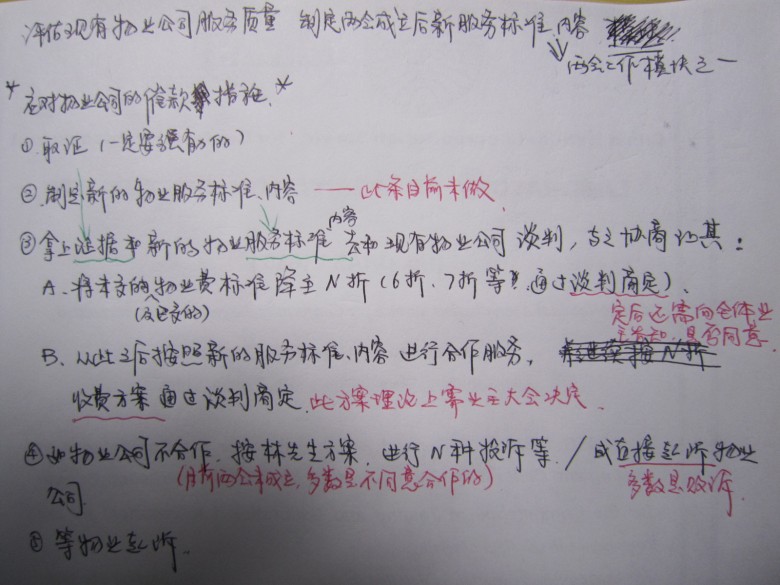 评估现有物业公司服务质量 制定两会成立后新服务标准、内容
两会工作模块之一
*应对物业公司的催款措施.*
①.取证(一定要强有力的)
②.制定新的物业服务标准、内容 ——此条目前未做.
③拿上证据和新的物业服务标准内容去和现有物业公司谈判,与之协商让其:
A、将未交的物业费标准降至N折(6折、7折等),通过谈判商定).
(及已交的)
定后还需向全体业
主告知,是否同意.
B、从此之后按照新的服务标准、内容进行合作服务,
收费方案通过谈判商定.此方案理论上需业主大会决定.
④如物业公司不合作,按林先生方案,进行N种投诉等./或直接起诉物业
公司.
(目前两会未成立,多数是不同意合作的)
多数是败诉.
⑤等物业起诉.